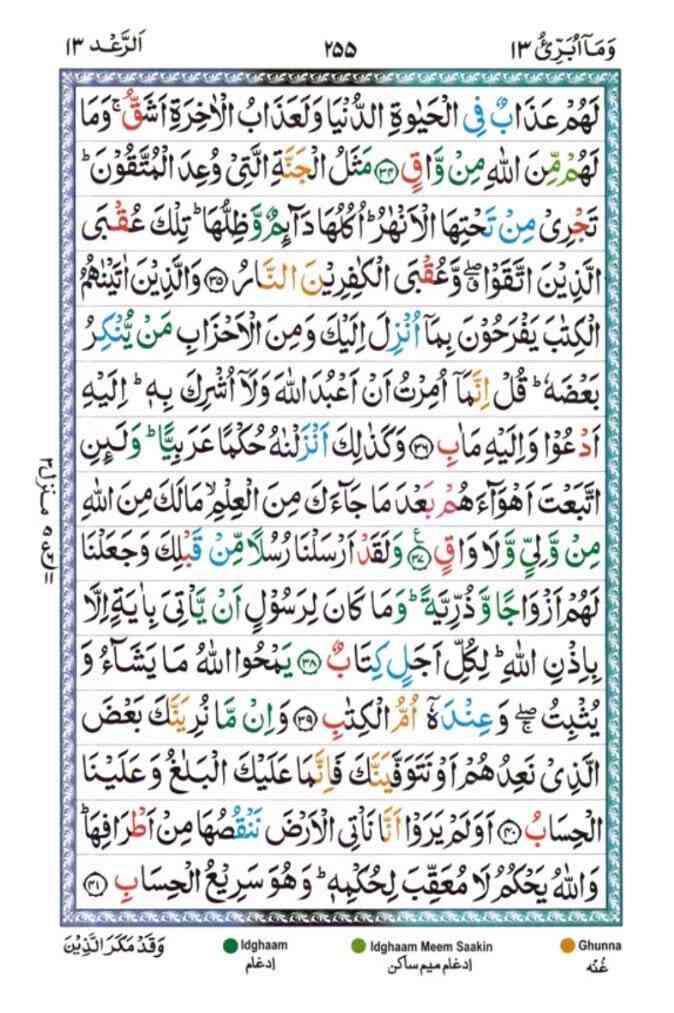 وَمَآ اُبَرِّئُ ١٣
٢٥٥
اَلرَّعْد ١٣
لَهُمْ عَذَابٌ فِی الْحَيٰوةِ الدُّنْيَا وَلَعَذَابُ الْاٰخِرَةِ اَشَقُّ ۚ وَمَا
لَهُمْ مِّنَ اللّٰهِ مِنْ وَّاقٍ ﴿۳۴﴾ مَثَلُ الْجَنَّةِ الَّتِیْ وُعِدَ الْمُتَّقُوْنَ ؕ
تَجْرِیْ مِنْ تَحْتِهَا الْاَنْهٰرُ ؕ اُكُلُهَا دَآىِٕمٌ وَّظِلُّهَا ؕ تِلْكَ عُقْبَی
الَّذِيْنَ اتَّقَوْا ۖۗ وَّعُقْبَی الْكٰفِرِيْنَ النَّارُ ﴿۳۵﴾ وَالَّذِيْنَ اٰتَيْنٰهُمُ
الْكِتٰبَ يَفْرَحُوْنَ بِمَآ اُنْزِلَ اِلَيْكَ وَمِنَ الْاَحْزَابِ مَنْ يُّنْكِرُ
بَعْضَهٗ ؕ قُلْ اِنَّمَآ اُمِرْتُ اَنْ اَعْبُدَ اللّٰهَ وَلَآ اُشْرِكَ بِهٖ ؕ اِلَيْهِ
اَدْعُوْا وَاِلَيْهِ مَاٰبِ ﴿۳۶﴾ وَكَذٰلِكَ اَنْزَلْنٰهُ حُكْمًا عَرَبِيًّا ؕ وَلَىِٕنِ
اتَّبَعْتَ اَهْوَآءَهُمْ بَعْدَ مَا جَآءَكَ مِنَ الْعِلْمِ ۙ مَا لَكَ مِنَ اللّٰهِ
مِنْ وَّلِیٍّ وَّلَا وَاقٍ ﴿۳۷﴾ ع وَلَقَدْ اَرْسَلْنَا رُسُلًا مِّنْ قَبْلِكَ وَجَعَلْنَا
لَهُمْ اَزْوَاجًا وَّذُرِّيَّةً ؕ وَمَا كَانَ لِرَسُوْلٍ اَنْ يَّاْتِیَ بِاٰيَةٍ اِلَّا
بِاِذْنِ اللّٰهِ ؕ لِكُلِّ اَجَلٍ كِتَابٌ ﴿۳۸﴾ يَمْحُوا اللّٰهُ مَا يَشَآءُ وَ
يُثْبِتُ ۖۚ وَعِنْدَهٗٓ اُمُّ الْكِتٰبِ ﴿۳۹﴾ وَاِنْ مَّا نُرِيَنَّكَ بَعْضَ
الَّذِیْ نَعِدُهُمْ اَوْ نَتَوَفَّيَنَّكَ فَاِنَّمَا عَلَيْكَ الْبَلٰغُ وَعَلَيْنَا
الْحِسَابُ ﴿۴۰﴾ اَوَلَمْ يَرَوْا اَنَّا نَاْتِی الْاَرْضَ نَنْقُصُهَا مِنْ اَطْرَافِهَا ؕ
وَاللّٰهُ يَحْكُمُ لَا مُعَقِّبَ لِحُكْمِهٖ ؕ وَهُوَ سَرِيْعُ الْحِسَابِ ﴿۴۱﴾
منزل ۳
وَقَدْ مَكَرَ الَّذِيْنَ
Idghaam
ادغام
Idghaam Meem Saakin
ادغام میم ساکن
Ghunna
غُنّه